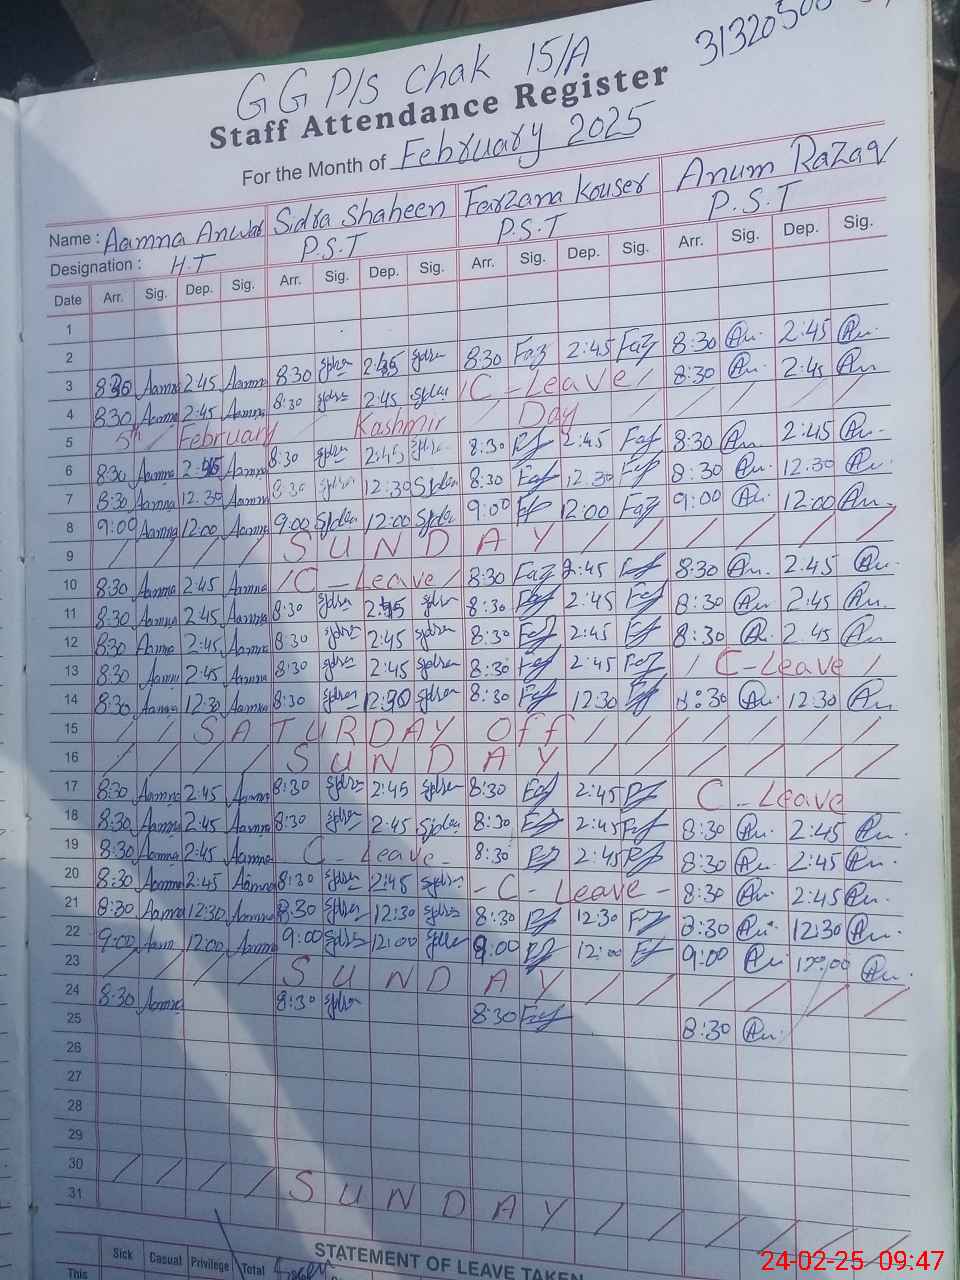 GGP/S Chak 15/A
Staff Attendance Register
For the Month of February 2025
Name : Aamna Anwar Sidra Shaheen Farzana Kouser Anum Razaq
Designation : H.T P.S.T P.S.T P.S.T
Date Arr. Sig. Dep. Sig. Arr. Sig. Dep. Sig. Arr. Sig. Dep. Sig. Arr. Sig. Dep. Sig.
1
2
3 8:30 Aamna 2:45 Aamna 8:30 2:45 8:30 Faz 2:45 Faz 8:30 An. 2:45 An.
4 8:30 Aamna 2:45 Aamna 8:30 2:45 C-Leave 8:30 An. 2:45 An.
5 5th February Kashmir Day
6 8:30 Aamna 2:45 Aamna 8:30 2:45 8:30 2:45 8:30 An. 2:45 An.
7 8:30 Aamna 12:30 Aamna 8:30 12:30 8:30 12:30 8:30 An. 12:30 An.
8 9:00 Aamna 12:00 Aamna 9:00 12:00 9:00 12:00 Faz 9:00 An. 12:00 An.
9 SUNDAY
10 8:30 Aamna 2:45 Aamna C-Leave 8:30 Faz 2:45 8:30 An. 2:45 An.
11 8:30 Aamna 2:45 Aamna 8:30 2:45 8:30 2:45 8:30 An. 2:45 An.
12 8:30 Aamna 2:45 Aamna 8:30 2:45 8:30 2:45 8:30 An. 2:45 An.
13 8:30 Aamna 2:45 Aamna 8:30 2:45 8:30 2:45 Faz C-Leave
14 8:30 Aamna 12:30 Aamna 8:30 12:30 8:30 12:30 8:30 An. 12:30 An.
15 SATURDAY Off
16 SUNDAY
17 8:30 Aamna 2:45 Aamna 8:30 2:45 8:30 2:45 C-Leave
18 8:30 Aamna 2:45 Aamna 8:30 2:45 8:30 2:45 8:30 An. 2:45 An.
19 8:30 Aamna 2:45 Aamna C-Leave- 8:30 2:45 8:30 An. 2:45 An.
20 8:30 Aamna 2:45 Aamna 8:30 2:45 -C-Leave- 8:30 An. 2:45 An.
21 8:30 Aamna 12:30 Aamna 8:30 12:30 8:30 12:30 8:30 An. 12:30 An.
22 9:00 Aamna 12:00 Aamna 9:00 12:00 9:00 12:00 9:00 An. 12:00 An.
23 SUNDAY
24 8:30 Aamna 8:30 8:30 8:30 An.
25
26
27
28
29
30
31 SUNDAY
STATEMENT OF LEAVE TAKEN
Sick Casual Privilege Total
This
24-02-25 09:47